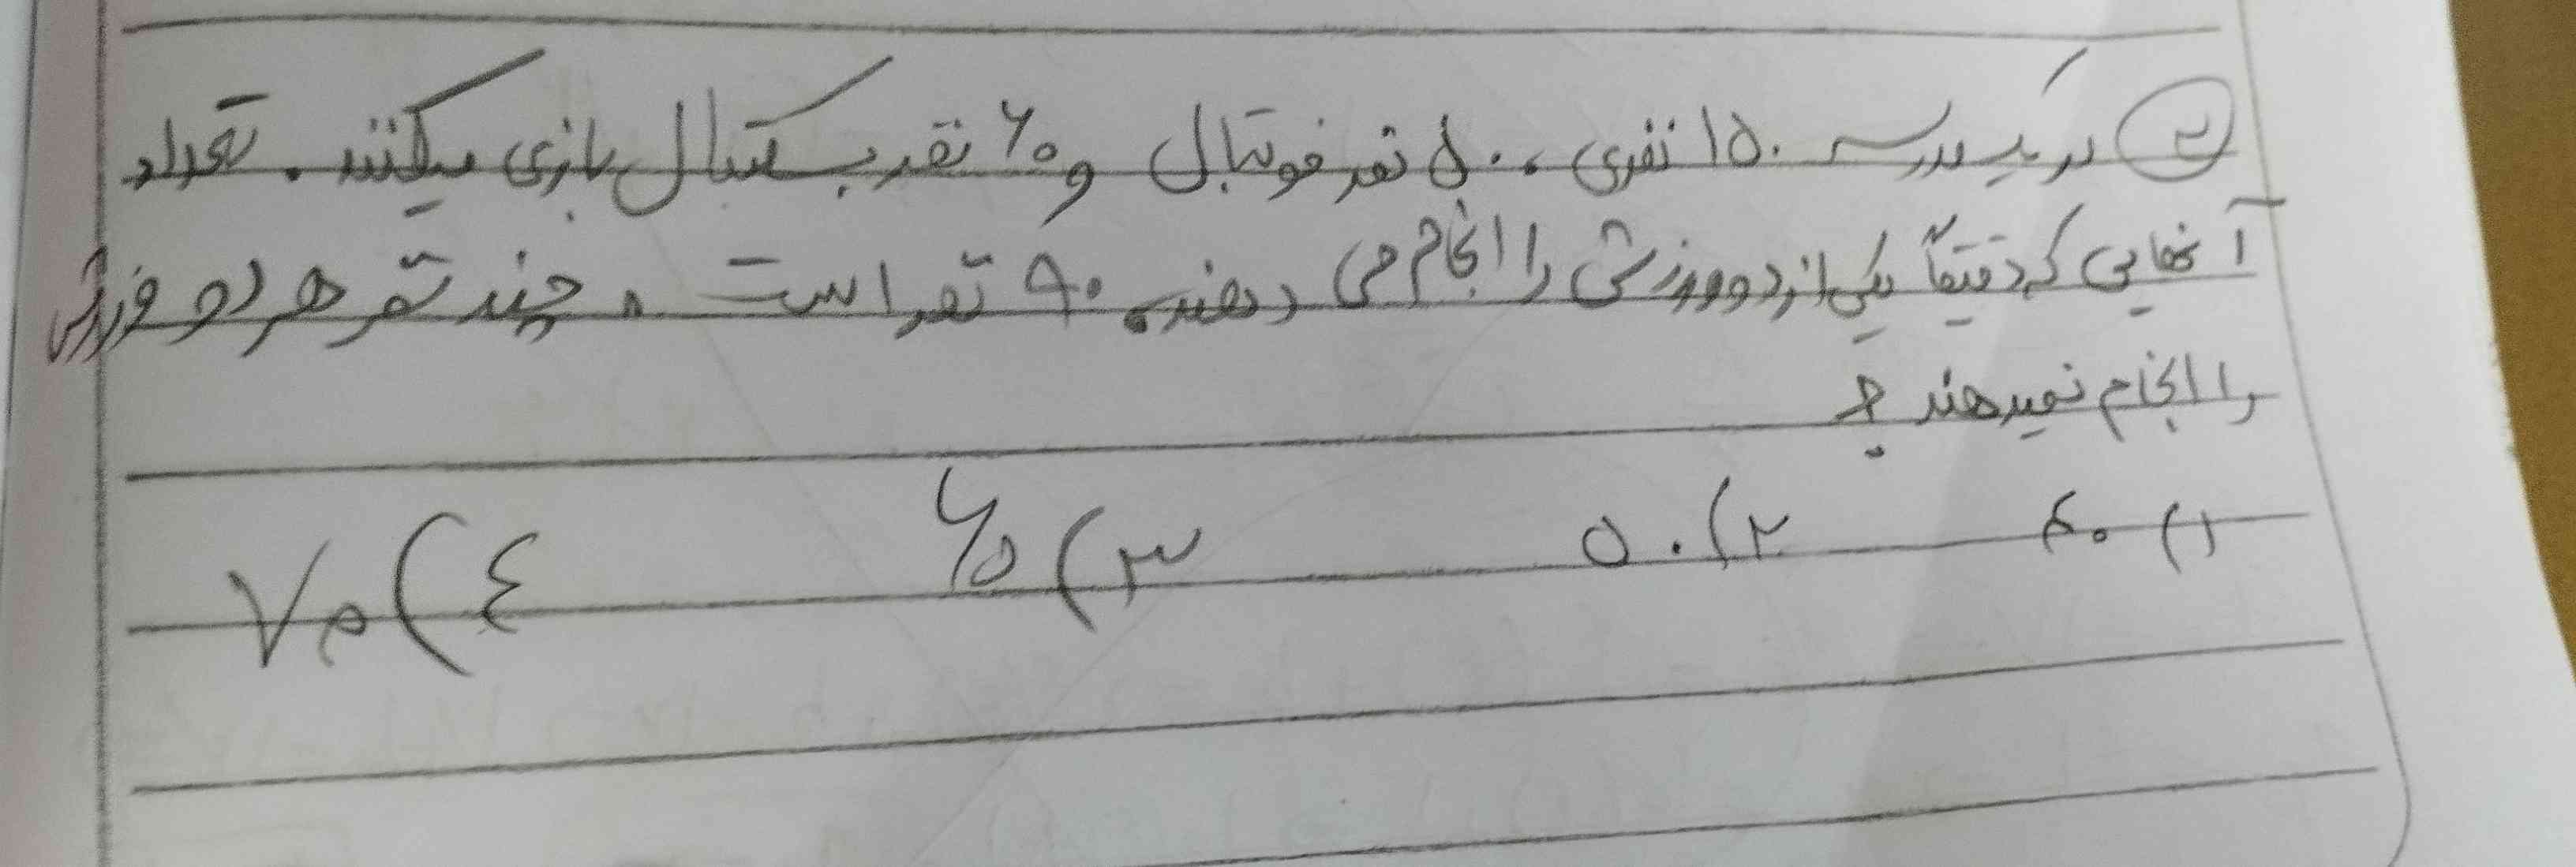 ۲ در یک مدرسه ۱۵۰ نفری، ۵۰ نفر فوتبال و ۶۰ نفر بسکتبال بازی میکنند. تعداد
آنهایی که دقیقاً یکی از دو ورزش را انجام می دهند، ۹۰ نفر است، چند نفر هر دو ورزش
را انجام نمیدهند ؟
۱) ۴۰ ۲) ۵۰ ۳) ۶۰ ٤) ۷۰